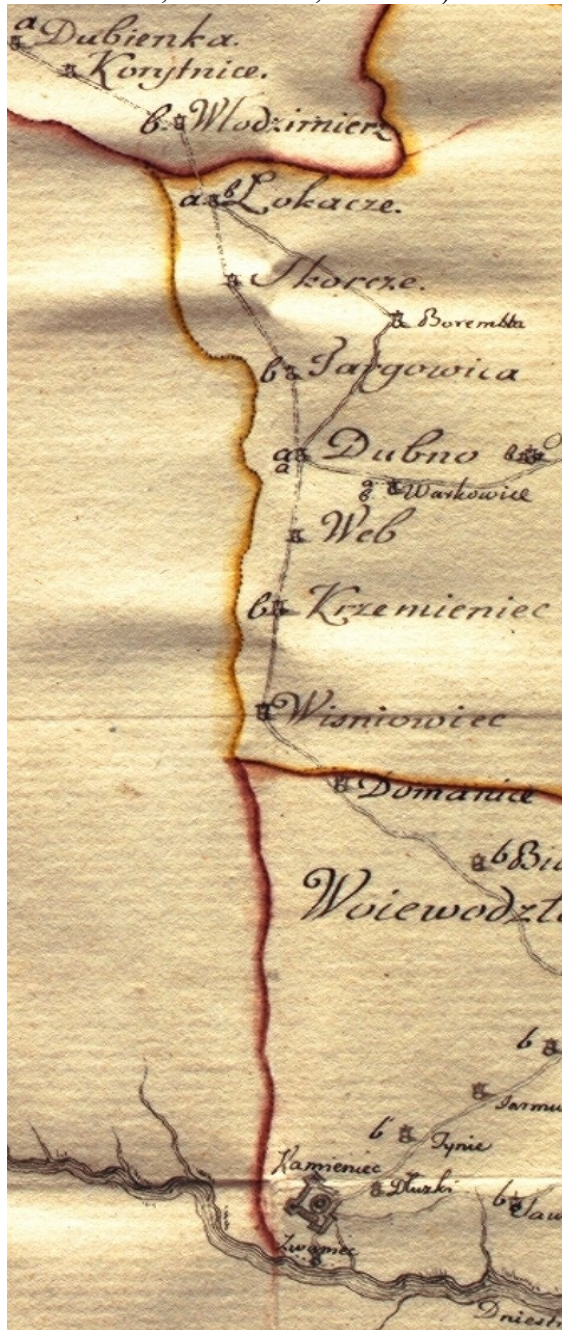 a
Dubienka.
Korytnice.
b Włodzimierz
a b Lokacze.
Skorcze.
Borembla
b Targowica
a
a Dubno b
a
b Warkowice
Web
b Krzemieniec
Wisniowiec
Domanice
b
Woiewodzt
b
b Tynie
Kamieniec
Dłuzki
b
Zwaniec
Dniestr